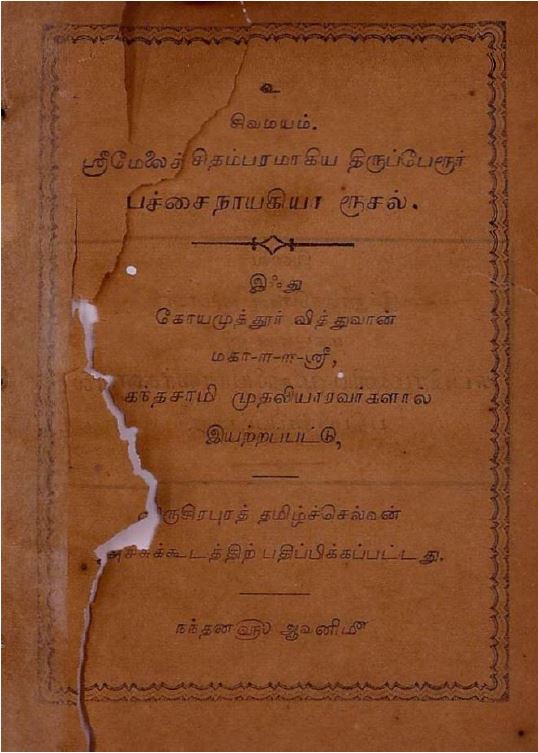 உ
சிவமயம்.
ஸ்ரீமேலைச் சிதம்பரமாகிய திருப்பேரூர்
பச்சைநாயகியா ரூசல்.
இஃது
கோயமுத்தூர் வித்துவான்
மகா-ள-ள-ஸ்ரீ,
கந்தசாமி முதலியாரவர்களால்
இயற்றப்பட்டு,
தமிழ்ச்செல்வன்
அச்சுக்கூடத்திற் பதிப்பிக்கப்பட்டது.
நந்தன௵ ஆவனி௴